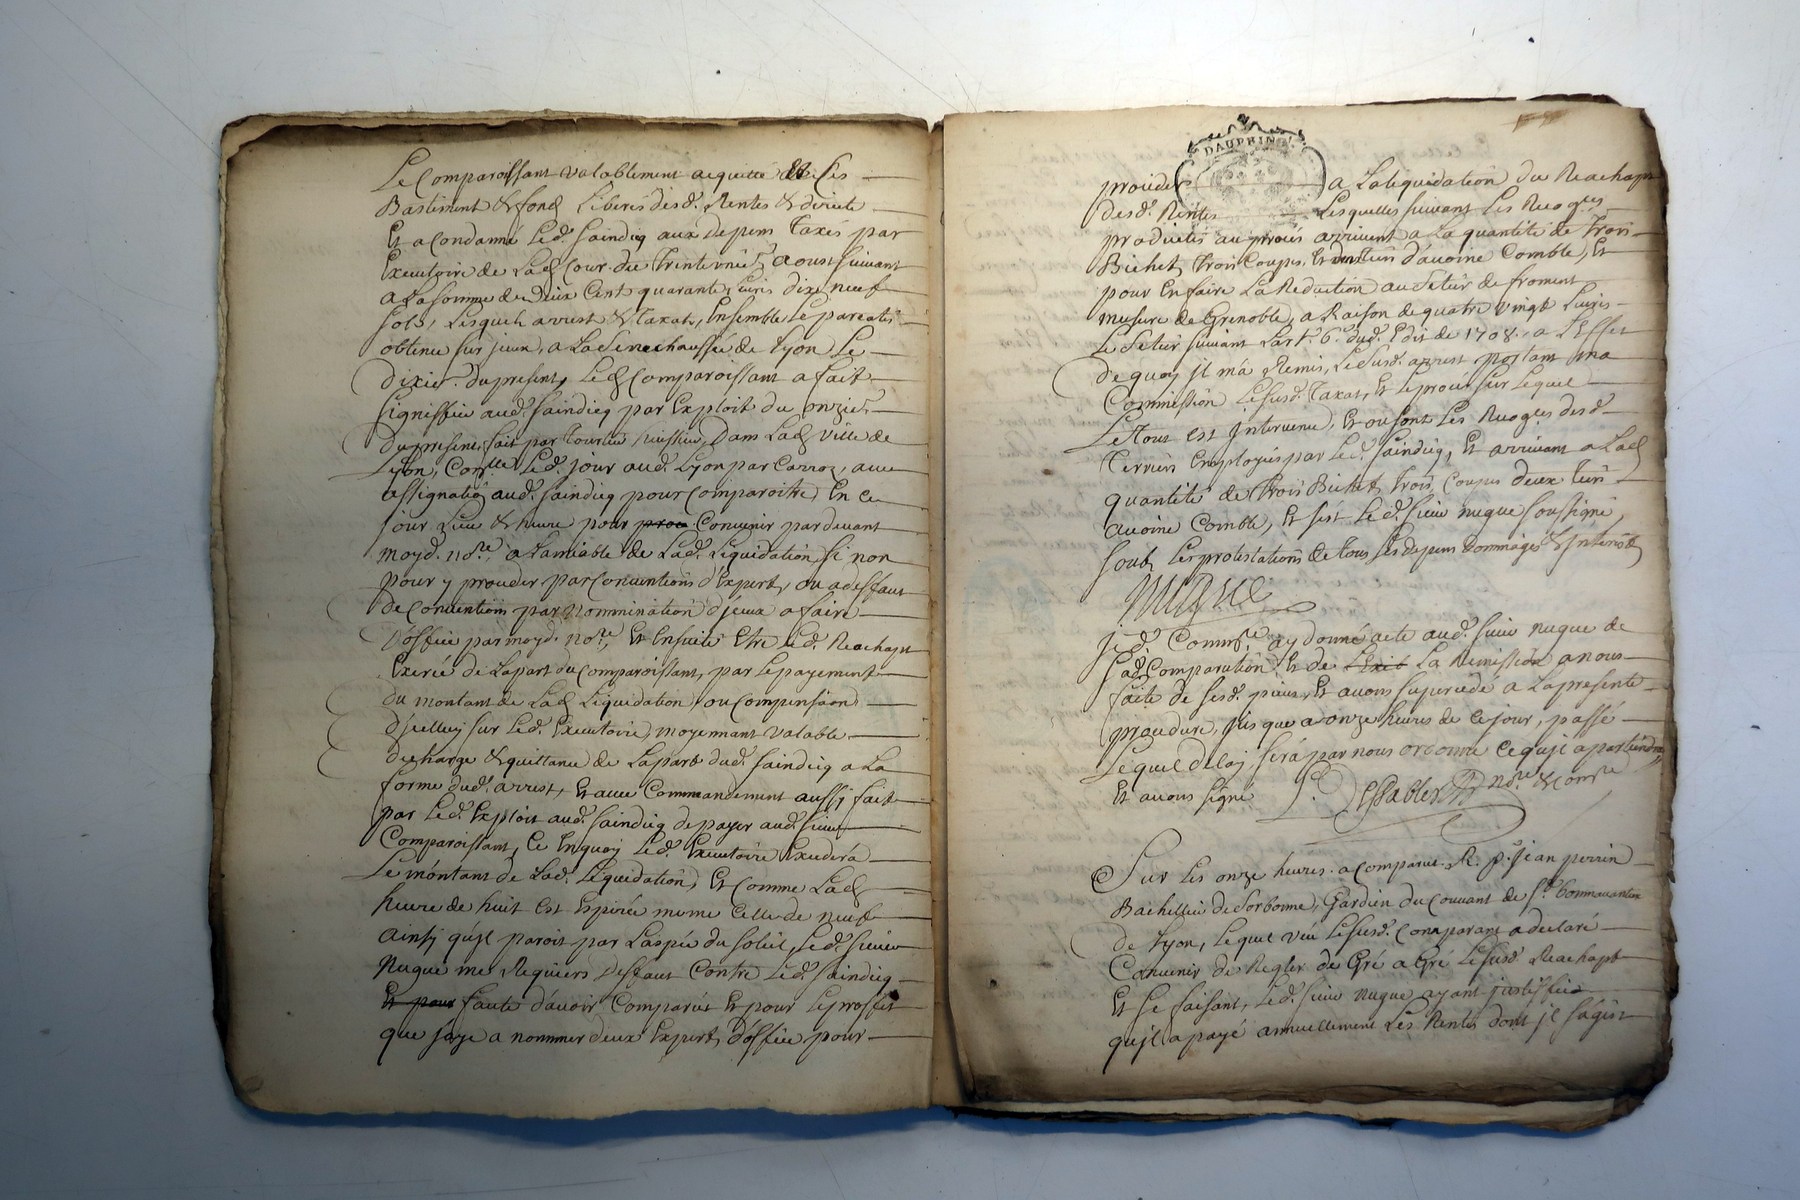 Le Comparoissant valablement acquitté & Les
Bastiment & fond Liberes desd. Rentes & directe
Et a Condamné Led. Saindiq aux depens Taxés par
Executoire de Lad Cour du trinte neuf aoust suivant
a La somme de Deux Cent quarante Livres dix neuf
sols, Lesquels arrest & Taxat, Ensemble Le pareatis
obtenu sur jceux, a La Senechaussée de Lyon Le
dixie. du present, Led Comparoissant a fait
signiffier aud. Saindiq par Exploit du onzie.
du present, fait par huissier, Dans Lad Ville de
Lyon, Conlle Led. jour aud. Lyon par Carroz, avec
assignatiõ aud. Saindiq pour Comparoitre En ce
jour Lieu & heure pour proce Convenir pardevant
moyd. nore. a Lamiable de Lad. Liquidation, si non
pour y proceder par Conventions d'Expert, ou a deffaut
de Conventions par Nommination d'jceux a faire
D'office par moyd. nore, Et Ensuite Etre Led. Reachapt
Exercé de La part du Comparoissant, par Le payement
du montant de Lad Liquidation, ou Compensaõn
D'jcelluy sur Led. Executoire, moyennant valable
decharge & quittance de La part dud. Saindiq a La
forme dud. arrest, Et avec Commandement aussy fait
par Led. Exploit aud. Saindiq de payer aud. Sieur
Comparoissant, Ce En quoy Led. Executoire Excedera
Le montant de Lad. Liquidation, Et Comme Lad
heure de huit Est Expirée meme Celle de neuf
ainsy qu'jl paroit par Laspec du Soleil, Led. Sieur
Nugue me Requiers Deffaut Contre Led. Saindiq
Et pour faute d'avoir Comparut Et pour Le proffit
que j'aye a nommer deux Expert, d'office pour
DAUPHINÉ
proceder a La liquidation du Reachapt
desd. Rentes Lesquelles suivant Les Recoges
produites au procés arrivent a La quantité de Trois
Bichet, trois Coupes, Et d'avoine Comble, Et
pour En faire La Reduction au Setier de froment
mesure de Grenoble, a Raison de quatre vingt Livres
Le Setier suivant L'art. 6. dud. Edit de 1708. a L'Effet
de quoy jl m'a Remis, Le susd. arrest portant ma
Commission Le susd. Taxat, Et Le procés sur Lequel
Le tout est Intervenu, Et ou sont Les Recoges desd.
Terriers Employés par Led. Saindiq, Et arrivant a Lad
quantité de trois Bichet, trois Coupes deux
avoine Comble, Et s'est Led. Sieur nugue soussigné,
soub Les protestations de tous Ses depens dommages & Interests
Nugue
je d. Commre. ay donné acte aud. Sieur nugue de
sad. Comparution Et de L'Exib La Remission a nous
faite de sesd. pieces, Et avons supercedé a La presente
procedure, jusque a onze heures de Ce jour, passé
Lequel delay, sera par nous ordonné Ce qu'jl apartiendra,
Et avons signé nore & comre
Sur Les onze heures a Comparut R. p. jean perrin
Bachellier de Sorbonne, Gardien du Couvant de St. bonnavanture
de Lyon, Lequel veu Le susd. Comparant a declaré
Convenir de Regler de Gré a Gré Le susd. Reachapt
Et Ce faisant, Led. Sieur nugue ayant justiffié
qu'jl a payé annuellement Les Rentes dont jl s'agist